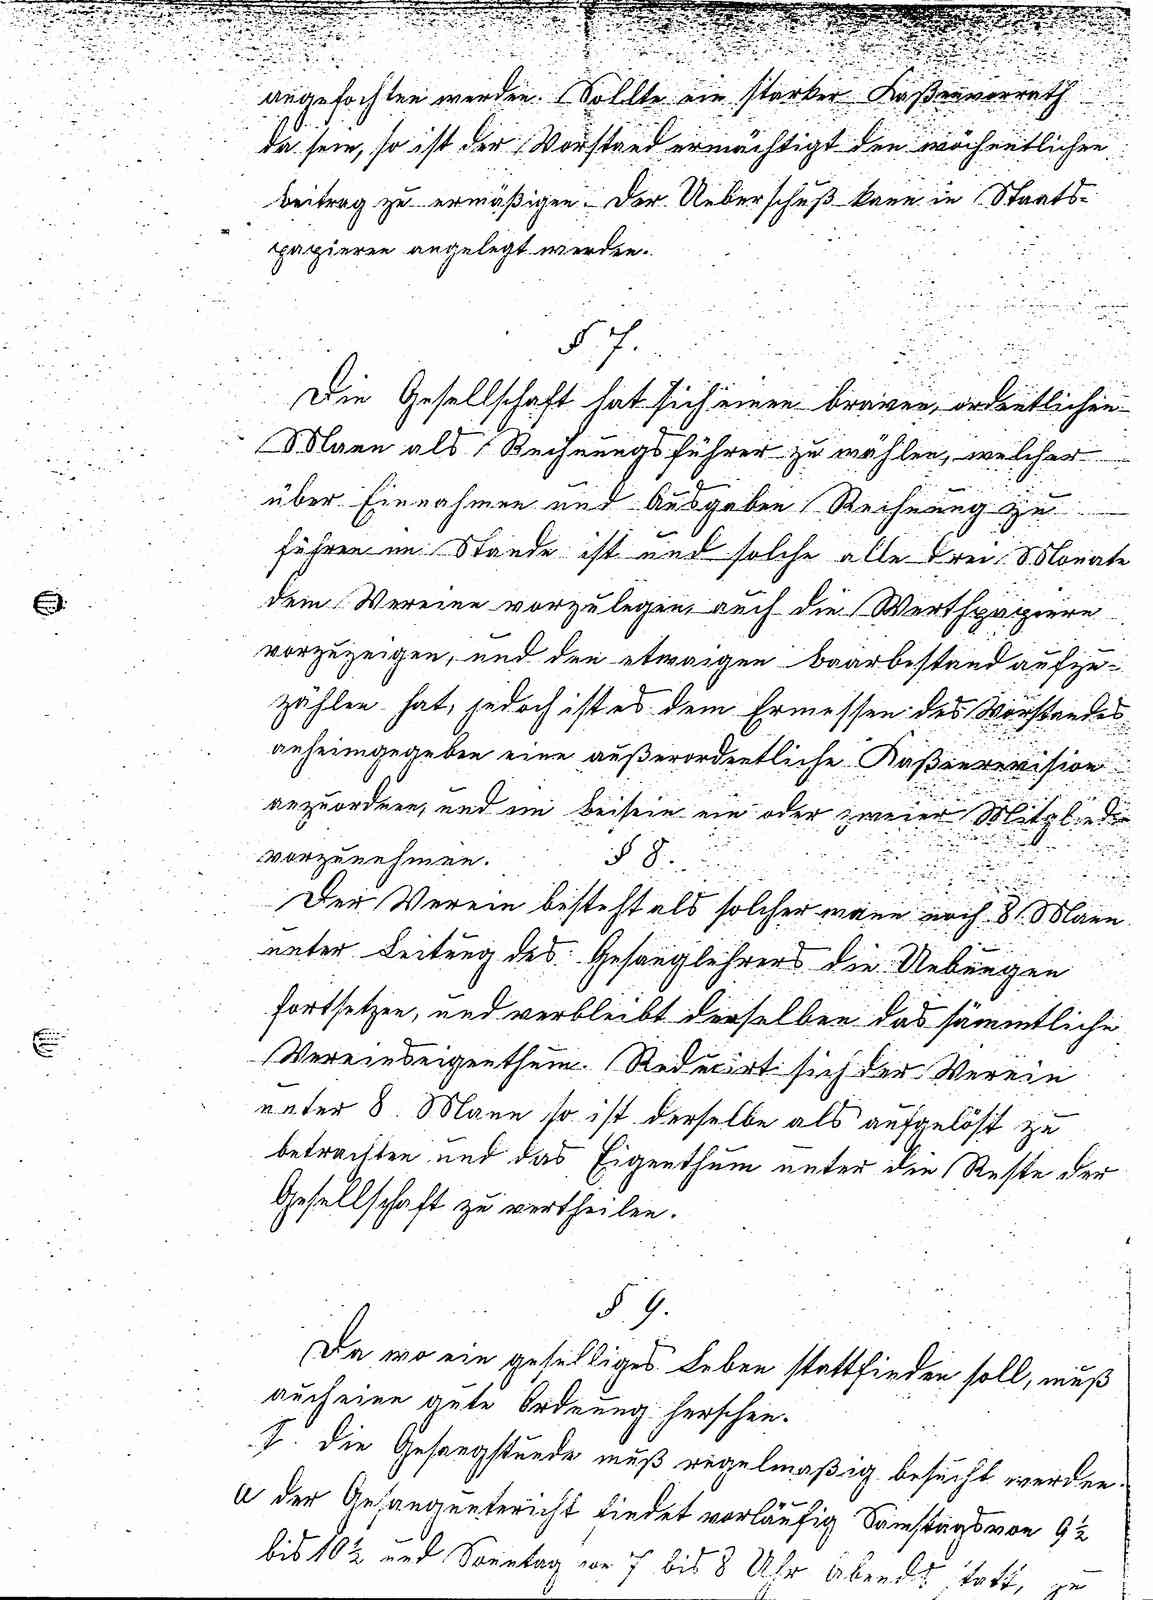 angefochten werden. Sollte ein starker Kaßenvorrath
da sein, so ist der Vorstand ermächtigt den wöchentlichen
Beitrag zu ermäßigen. Der Ueberschuß kann in Staats-
papieren angelegt werden.
§ 7.
Die Gesellschaft hat sich einen braven, ordentlichen
Mann als Rechnungsführer zu wählen, welcher
über Einnahmen und Ausgaben Rechnung zu
führen im Stande ist und solche alle drei Monate
dem Vereine vorzulegen, auch die Werthpapiere
vorzuzeigen, und den etwaigen Baarbestand aufzu-
zählen hat, jedoch ist es dem Ermessen des Vorstandes
anheimgegeben eine außerordentliche Kaßenrevision
anzuordnen, und im Beisein ein oder zweier Mitglieder
vorzunehmen. § 8.
Der Verein besteht als solcher wenn noch 8 Mann
unter Leitung des Gesanglehrers die Uebungen
fortsetzen, und verbleibt denselben das sämmtliche
Vereinseigenthum. Reducirt sich der Verein
unter 8 Mann so ist derselbe als aufgelöst zu
betrachten und das Eigenthum unter die Reste der
Gesellschaft zu vertheilen.
§ 9.
Da wo ein geselliges Leben stattfinden soll, muß
auch eine gute Ordnung herschen.
I. die Gesangstunde muß regelmaßig besucht werden.
a der Gesangunterricht findet vorläufig Samstags von 9½
bis 10½ und Sonntag von 7 bis 8 Uhr Abends statt, zu